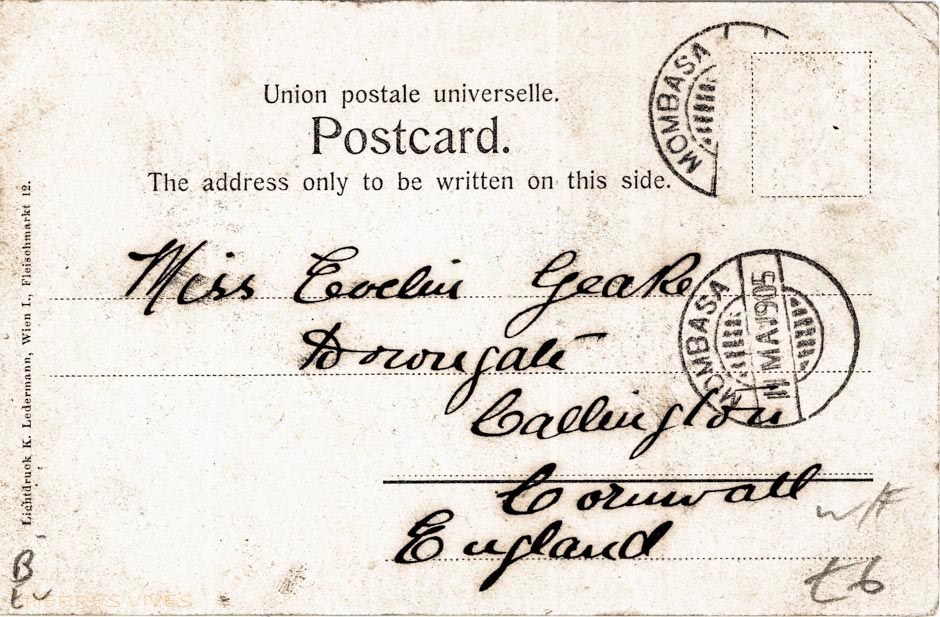 MOMBASA
Union postale universelle.
Postcard.
The address only to be written on this side.
Miss Evelin Geake
Downgate
Callington
Cornwall
England
MOMBASA
MA 1905
Lightdruck K. Ledermann, Wien I., Fleischmarkt 12.
w/F
t6
B
PIERRES VIVES